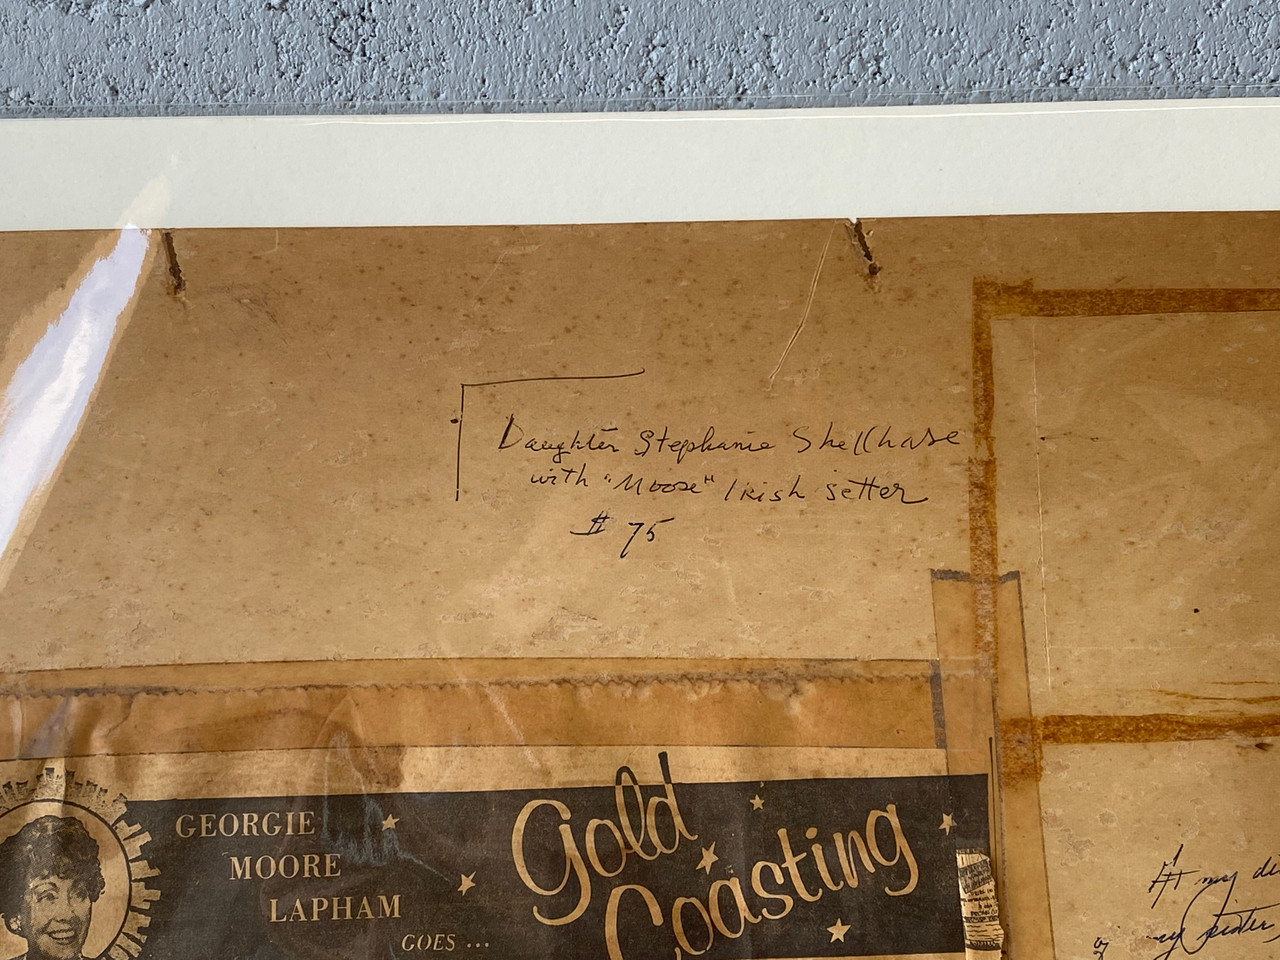 Daughter Stephanie Shellhase
with "Moose" Irish setter
$ 75
GEORGIE
MOORE
LAPHAM
GOES ...
Gold
Coasting
At my
my